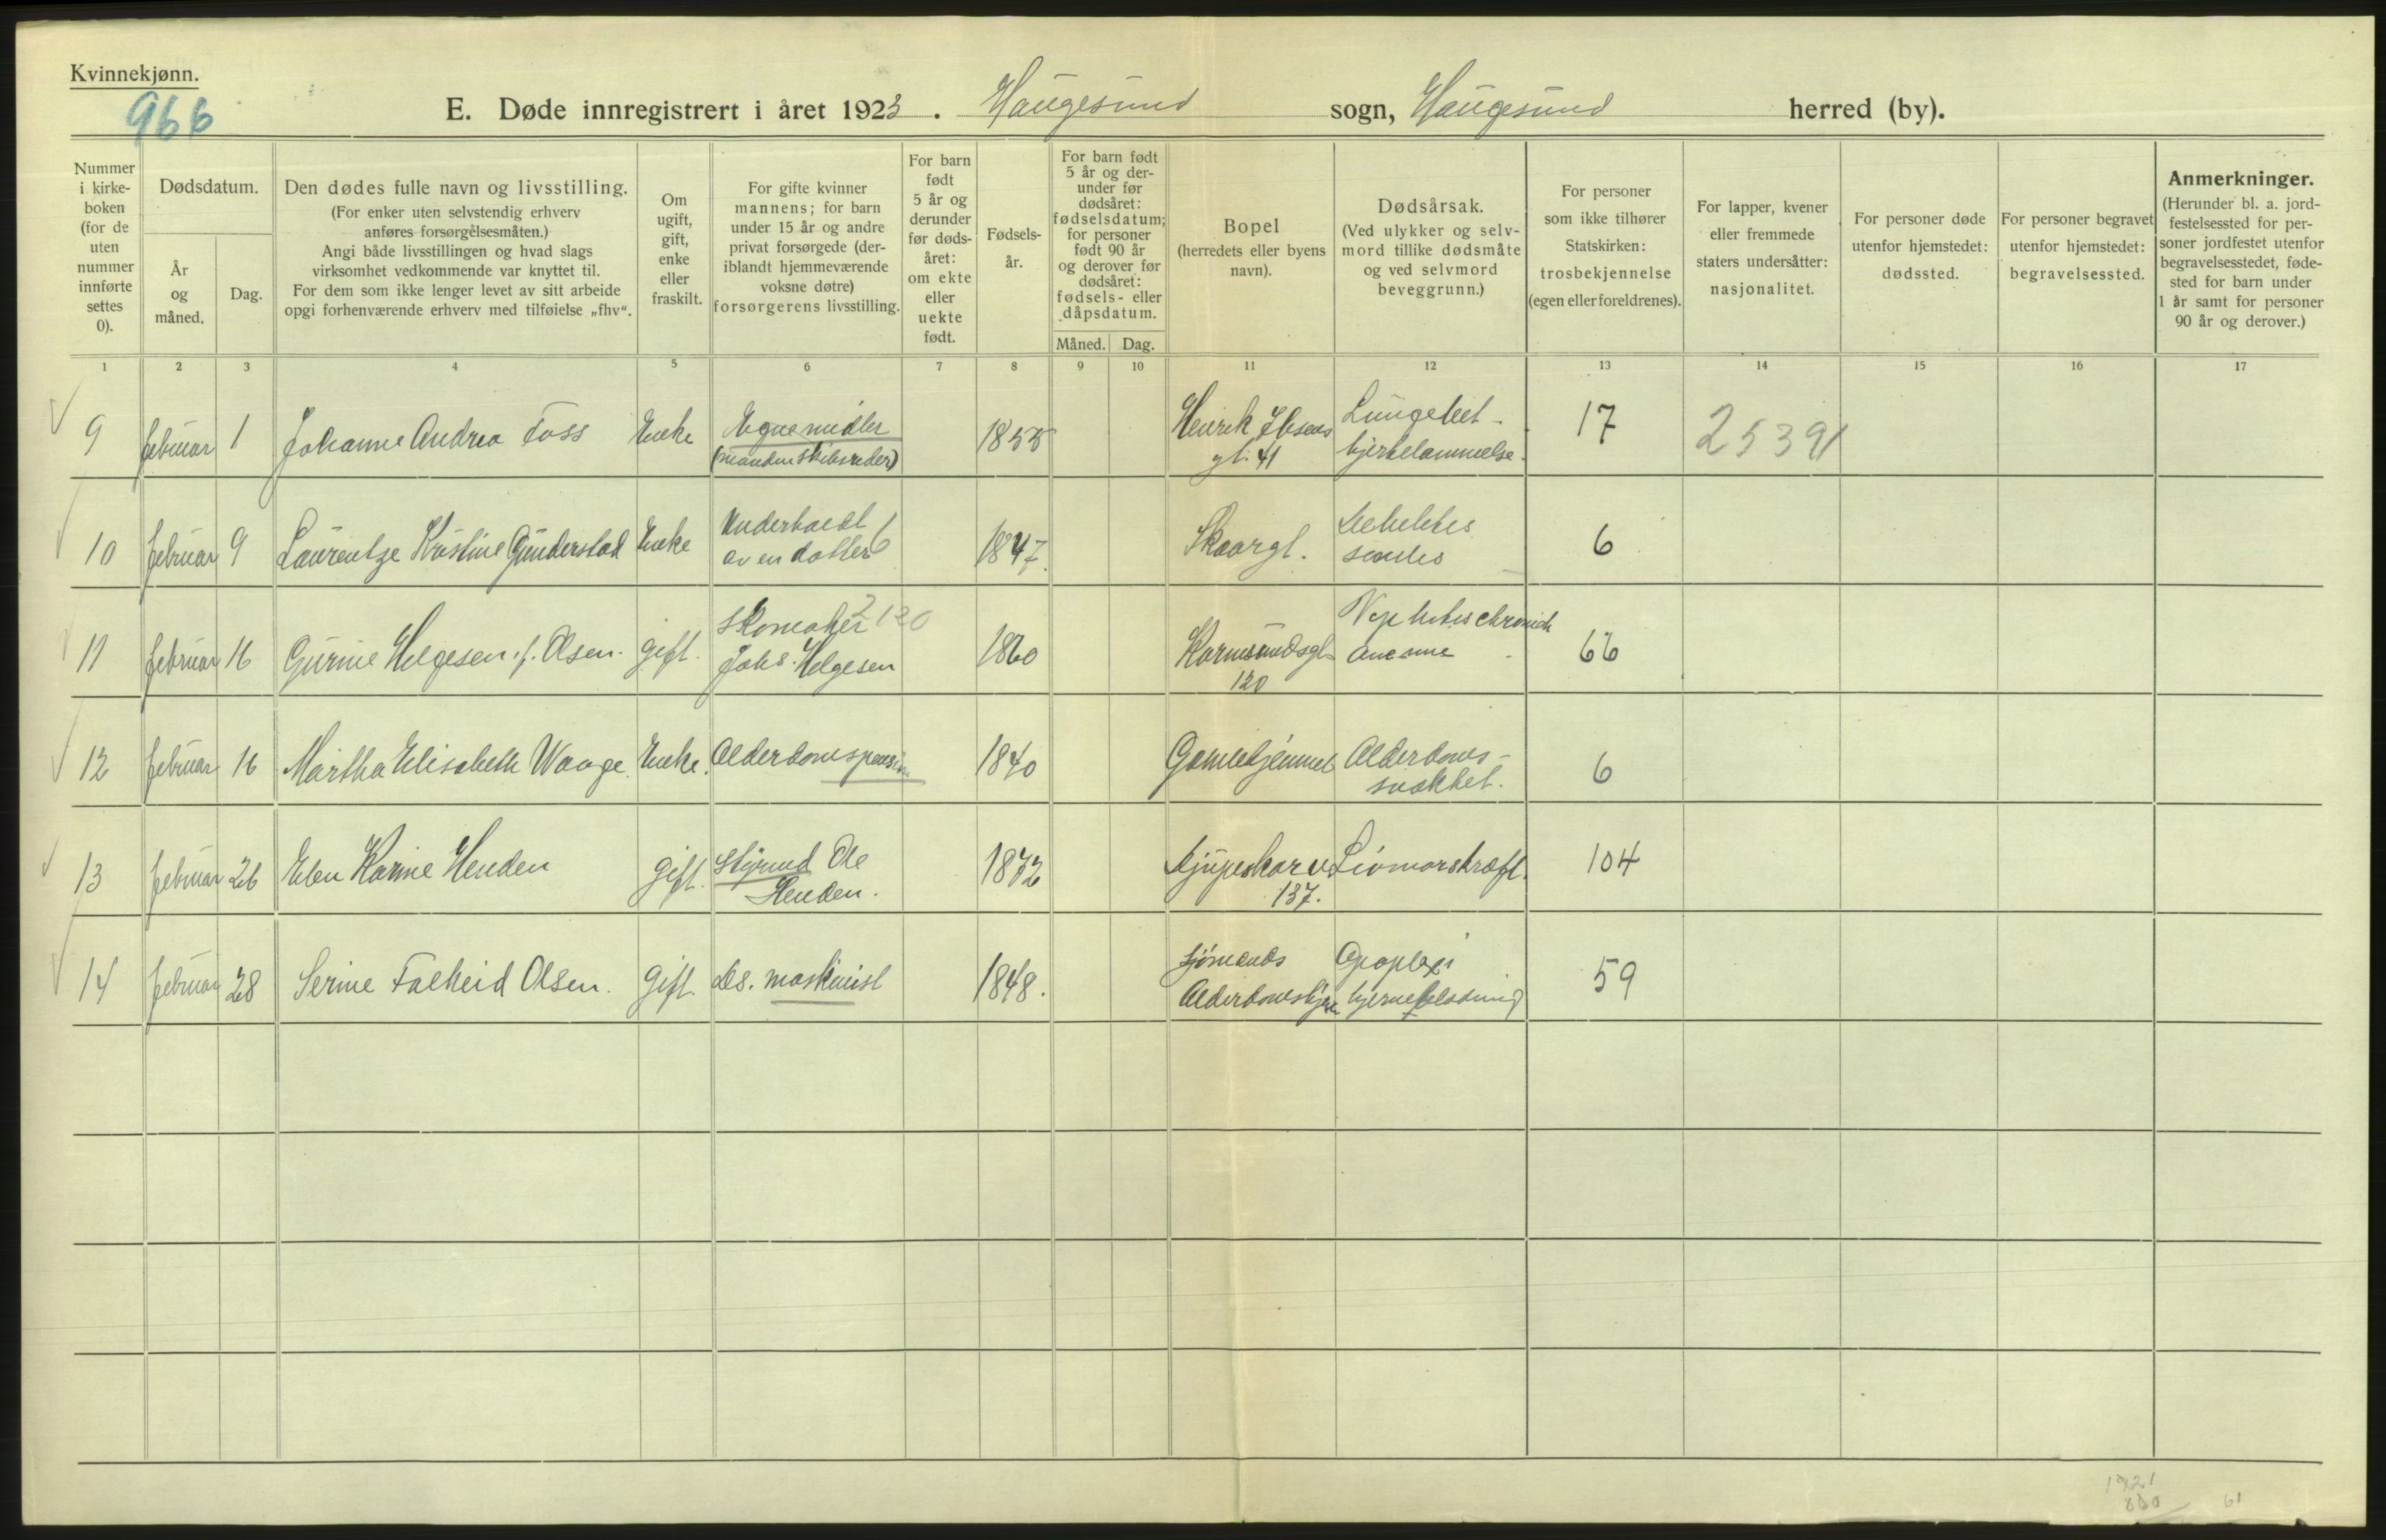 Kvinnekjønn.
966
E. Døde innregistrert i året 1923. Haugesund sogn, Haugesund herred (by).
Nummer i kirke-boken (for de uten nummer innførte settes 0).
Dødsdatum.
År og måned.
Dag.
Den dødes fulle navn og livsstilling.
(For enker uten selvstendig erhverv anføres forsørgelsesmåten.)
Angi både livsstillingen og hvad slags virksomhet vedkommende var knyttet til.
For dem som ikke lenger levet av sitt arbeide opgi forhenværende erhverv med tilføielse „fhv“.
Om ugift, gift, enke eller fraskilt.
For gifte kvinner mannens; for barn under 15 år og andre privat forsørgede (der-iblandt hjemmeværende voksne døtre) forsørgerens livsstilling.
For barn født 5 år og derunder før døds-året: om ekte eller uekte født.
Fødsels-år.
For barn født 5 år og der-under før dødsåret: fødselsdatum; for personer født 90 år og derover før dødsåret: fødsels- eller dåpsdatum.
Måned. Dag.
Bopel (herredets eller byens navn).
Dødsårsak.
(Ved ulykker og selv-mord tillike dødsmåte og ved selvmord beveggrunn.)
For personer som ikke tilhører Statskirken: trosbekjennelse (egen eller foreldrenes).
For lapper, kvener eller fremmede staters undersåtter: nasjonalitet.
For personer døde utenfor hjemstedet: dødssted.
For personer begravet utenfor hjemstedet: begravelsessted.
Anmerkninger.
(Herunder bl. a. jord-festelsessted for per-soner jordfestet utenfor begravelsesstedet, føde-sted for barn under 1 år samt for personer 90 år og derover.)
1 2 3 4 5 6 7 8 9 10 11 12 13 14 15 16 17
9 februar 1 Johanne Andrea Foss Enke Egne midler (manden skibsreder) 1855 Henrik Ibsens gt. 41 Lungebet - hjertelammelse. 17 25391
10 februar 9 Laurentze Kristine Gunderstad Enke Underholdt av en datter 6 1847. Skaargt. senilis 6
11 februar 16 Gurine Helgesen f. Olsen. gift. Skomaker 2120 Johs. Helgesen 1860 Karmsundsgt 120 chronich 66
12 februar 16 Martha Elisabeth Waage. Enke. Alderdomspension 1840 Gamlehjemmet Alderdoms-svakhet. 6
13 februar 26 Elen Karine Henden gift. Styrmd Ole Henden. 1872 Djupeskarv 137. Livmorskræft. 104
14 februar 28 Serine Falkeid Olsen. gift. Ds. maskinist 1848. Sjømands Alderdomshjem Apoplexi hjerneblødning 59
1921
800
61